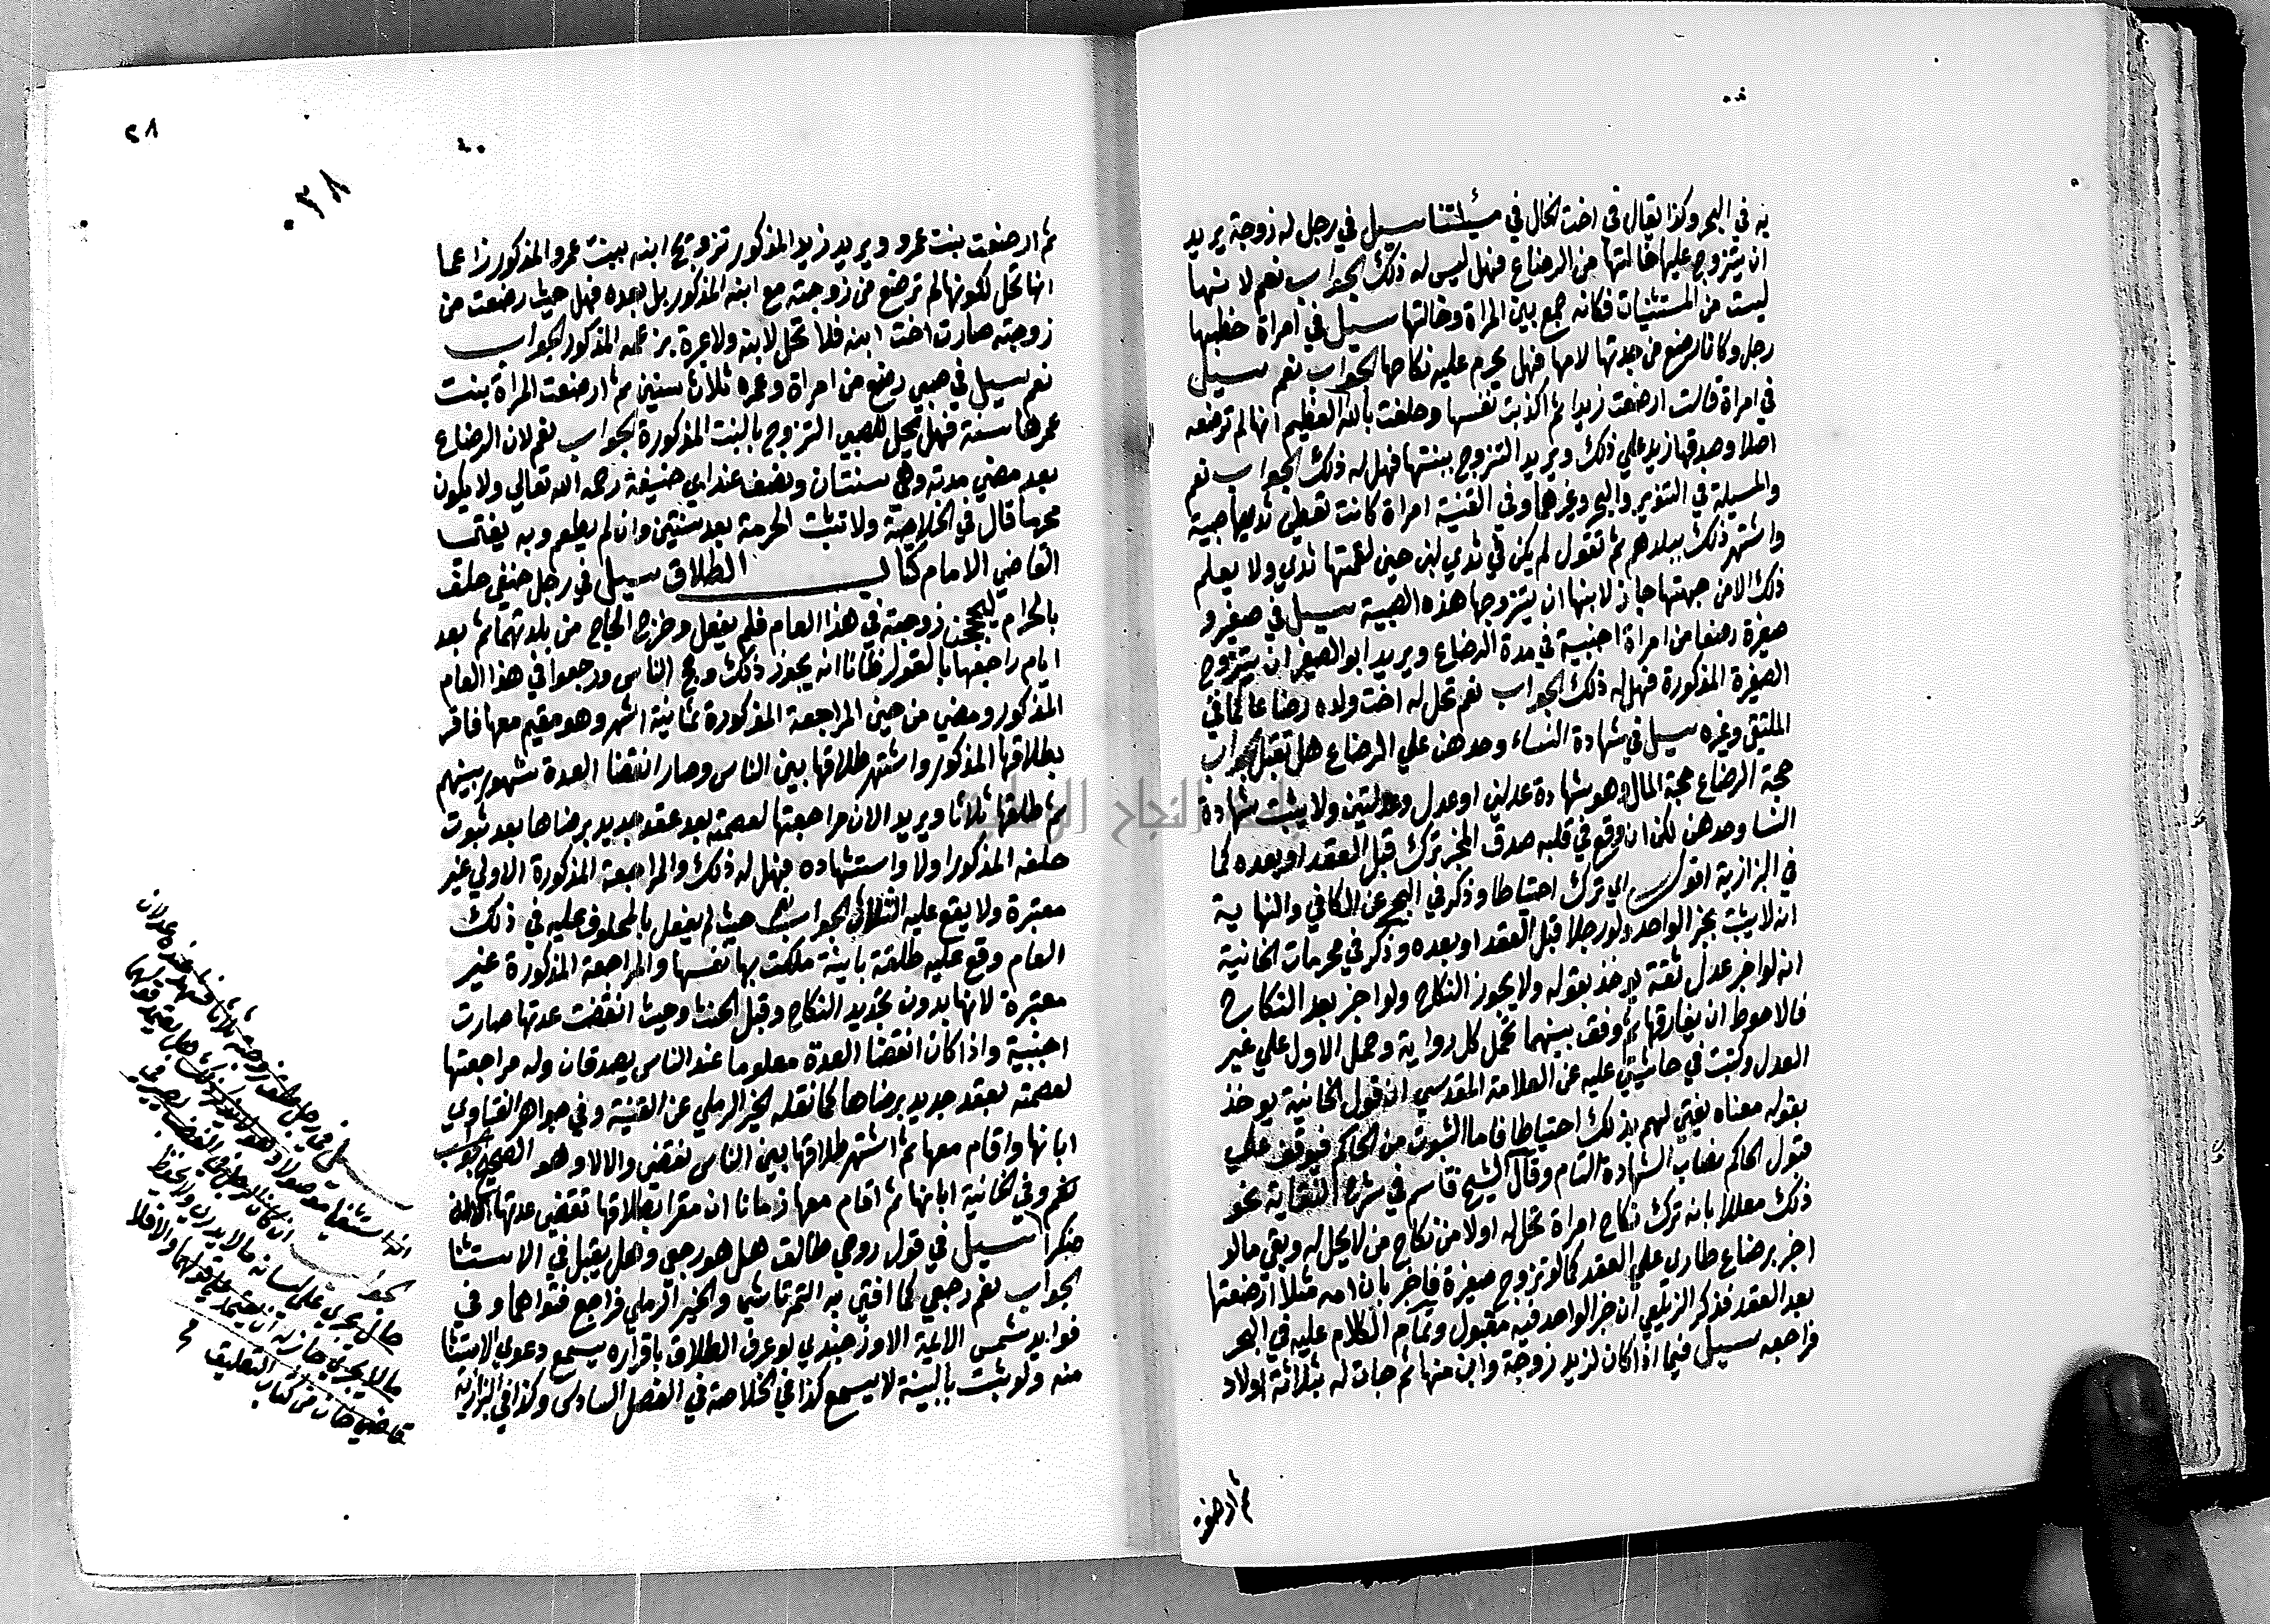 به في البحر وكذا يقال في اخت الخال في مسئلتنا سيل في رجل له زوجة يريد
ان يتزوج عليها خالتها من الرضاع فهل ليس له ذلك الجواب نعم لانها
ليست من المستثنيات فكانه جمع بين المراة وخالتها سيل في امراة خطبها
رجل وكانا رضع من جدتها لامها فهل يحرم عليه نكاحها الجواب نعم سيل
في امراة قالت ارضعت زيدا ثم اكذبت نفسها وحلفت بالله العظيم انها لم ترضعه
اصلا وصدقها زيد علي ذلك ويريد التزوج ببنتها فهل له ذلك الجواب نعم
والمسيلة في التنوير والبحر وغيرهما وفي القنية امراة كانت تعطي ثديها صبية
واشتهر ذلك ببلدهم ثم تقول لم يكن في ثدي لبن حين لقمتها ثدي ولا يعلم
ذلك الا من جهتها جاز لابنها ان يتزوجها هذه الصبية سيل في صغير و
صغيرة رضعا من امراة اجنبية في مدة الرضاع ويريد ابو الصغير ان يتزوج
الصغيرة المذكورة فهل له ذلك الجواب نعم تحل له اخت ولده رضاعا كما في
الملتقي وغيره سيل في شهادة النساء وحدهن علي الرضاع هل تقبل الجواب
حجة الرضاع حجة المال وهو شهادة عدلين او عدل وعدلتين ولا يثبت بشهادة
النسا وحدهن لكن ان وقع في قلبه صدق المخبر ترك قبل العقد او بعده كما
في البزازية اقول اي ترك احتياطا وذكر في البحر عن الكافي والنهاية
انه لا يثبت بخبر الواحد ولو رجلا قبل العقد او بعده وذكر في محرمات الخانية
انه لو اخبر عدل ثقة يوخذ بقوله ولا يجوز النكاح ولو اخبر بعد النكاح
فالاحوط ان يفارقها ثم وفق بينهما بحمل كل رواية وحمل الاول علي غير
العدل وكتبت في حاشيتي عليه عن العلامة المقدسي ان قول الخانية يوخذ
بقوله معناه يفتي لهم بذلك احتياطا فاما الثبوت من الحاكم فيوقف علي
قبول الحاكم نصاب الشهادة التام وقال الشيخ قاسم في شرح النقاية نحو
ذلك معللا بانه ترك نكاح امراة تحل له اولا من نكاح من لا يحل له وبقي ما لو
اخبر برضاع طاري علي العقد كما لو تزوج صغيرة فاخبر بان امه مثلا ارضعتها
بعد العقد فذكر الزيلعي ان خبر الواحد فيه مقبول وتمام الكلام عليه في البحر
فراجعه سيل فيما اذا كان لزيد زوجة وابن منها ثم جات له بثلاثة اولاد
ثم ارضعت
٢٨
٠٣٨
ثم ارضعت بنت عمرو ويريد زيد المذكور تزويج ابنه ببنت عمرو المذكور زاعما
انها تحل لكونها لم ترضع من زوجته مع ابنه المذكور بل بعده فهل حيث رضعت من
زوجته صارت اخت ابنه فلا تحل لابنه ولا عبرة بزعمه المذكور الجواب
نعم سيل في صبي رضع من امراة وعمره ثلاث سنين ثم ارضعت المراة بنت
عمرها سنة فهل يحل للصبي التزوج بالبنت المذكورة الجواب نعم لان الرضاع
بعد مضي مدته وهي سنتان ونصف عند ابي حنيفة رحمه الله تعالي ولا يكون
محرما قال في الخلاصة ولا تثبت الحرمة بعد سنتين وان لم يطعم وبه يفتي
القاضي الامام كتاب الطلاق سيل في رجل حنفي حلف
بالحرام ليحججن زوجته في هذا العام فلم يفعل وخرج الحاج من بلدتهما ثم بعد
ايام راجعها بالقول ظانا انه يجوز ذلك وحج الناس ورجعوا في هذا العام
المذكور ومضي من حين المراجعة المذكورة ثمانية اشهر وهو مقيم معها فاقر
بطلاقها المذكور واشتهر طلاقها بين الناس وصار انقضا العدة مشهور بينهم
ثم طلقها ثلاثا ويريد الان مراجعتها لعصمته بعد عقد جديد برضاها بعد ثبوت
حلفه المذكور اولا واستشهاده فهل له ذلك والمراجعة المذكورة الاولي غير
معتبرة ولا يقع عليه الثلاث الجواب نعم حيث لم يفعل بالمحلوف عليه في ذلك
العام وقع عليه طلقة باينة ملكت بها نفسها والمراجعة المذكورة غير
معتبرة لانها بدون تجديد النكاح وقبل الحنث وحيث انقضت عدتها صارت
اجنبية واذا كان انقضا العدة معلوما عند الناس يصدقان وله مراجعتها
لعصمته بعقد جديد برضاها كما نقله الخير الرملي عن القنية وفي جواهر الفتاوي
ابانها واقام معها ثم اشتهر طلاقها بين الناس تنقضي والا لا وهو الصحيح الجواب
نعم وفي الخانية ابانها ثم اقام معها زمانا ان مقرا بطلاقها تنقضي عدتها لا ان
منكرا سيل في قول روحي طالق هل هو رجعي وهل يقبل في الاستثنا
الجواب نعم رجعي كما افتي به التمرتاشي والخير الرملي فراجع فتواهما وفي
فوايد شمس الايمة الاوزجندي لو عرف الطلاق باقراره يسمع دعوي الاستثنا
منه ولو ثبت بالبينة لا يسمع كذا في الخلاصة في الفصل السادس وكذا في البزازية
سيل في رجل طلق زوجته ثلاثا فشهد عنده عدلان
انه استثنا موصولا وهو لا يتذكر ذلك هل يعتمد قولهما
الجواب ان كان الرجل في الغضب يصير في
حال يجري علي لسانه ما لا يريد ولا يحفظ
ما لا يجري جاز له ان يعتمد علي قولهما والا فلا
قاضي خان من كتاب التعليق